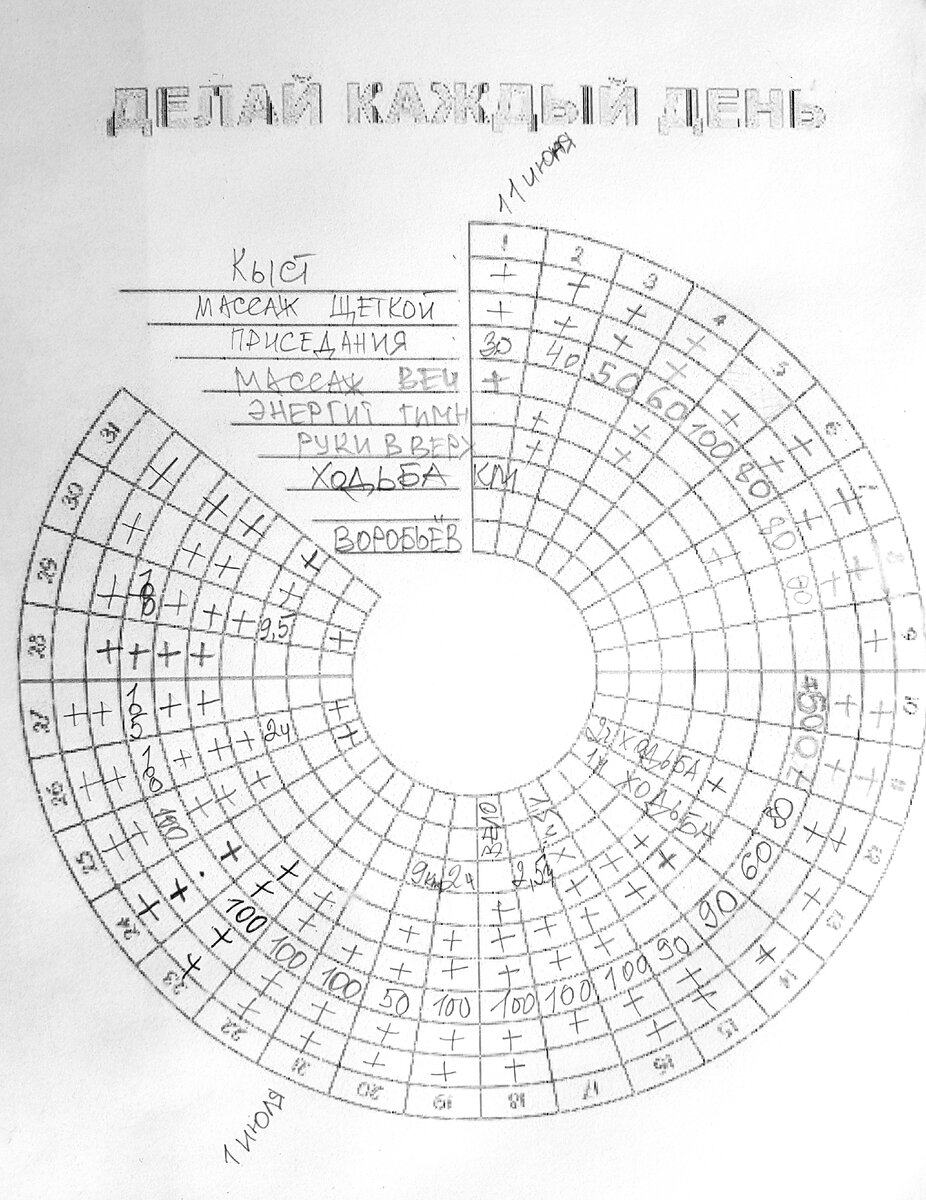 ДЕЛАЙ КАЖДЫЙ ДЕНЬ
11 июня
КЫСТ
МАССАЖ ЩЕТКОЙ
ПРИСЕДАНИЯ
МАССАЖ ВЕЧ
ЭНЕРГИТ ГИМН
РУКИ ВВЕРХ
ХОДЬБА КМ
ВОРОБЬЁВ
1 2 3 4 5 6 7 8 9 10 11 12 13 14 15 16 17 18 19 20 21 22 23 24 25 26 27 28 29 30 31
+ + + + + + + + + + + + + + + + + + + + + + + +
30 40 50 60 100 80 90 80
80 60 90 90 100 100 100 100 50 100 100 100
100
100
105
100
2ч ХОДЬБА
1ч ХОДЬБА
2,5ч
ВЕЛО
2ч
9км
2ч
9,5
1 ИЮЛЯ